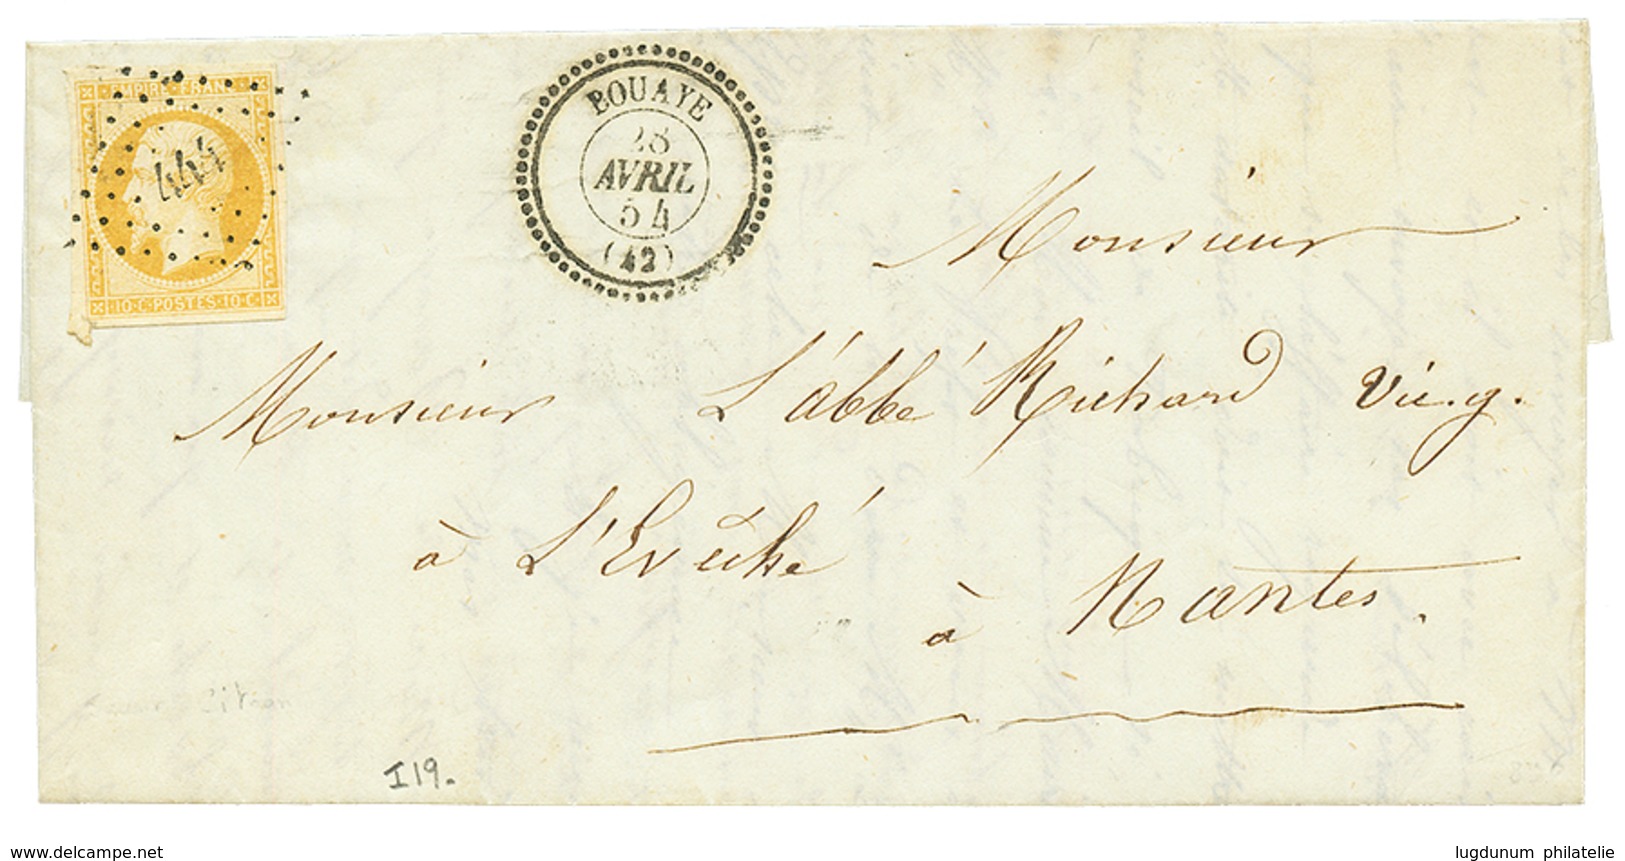 EMPIRE · FRANC
444
10 · C · POSTES · 10 · C ·
BOUAYE
28
AVRIL
54
(42)
Monsieur
Monsieur L'abbé Richard Vic. g.
à L'Evêché
à Nantes.
I19.
delcampe.net
lugdunum philatelie